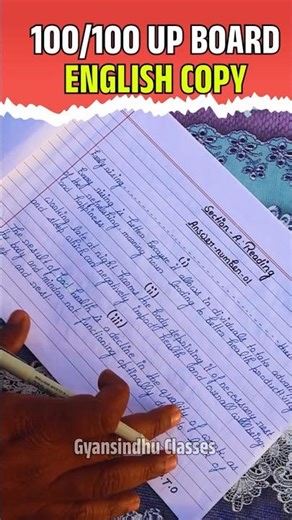 100/100 UP BOARD
ENGLISH COPY
Section-A-Reading
Answer-number-01
(i)
Early rising
Early rising is better because it allows individuals to take advantage
of the peaceful morning hours leading to better health productivity
and happiness
(ii)
working late at night harms the body depriving it of necessary rest
and sleep which can negatively impact health and overall wellbeing
(iii)
The result of bad health is a decline in the quality of work as
the body and mind are not functioning optimally
and rest
P.T.O
Gyansindhu Classes